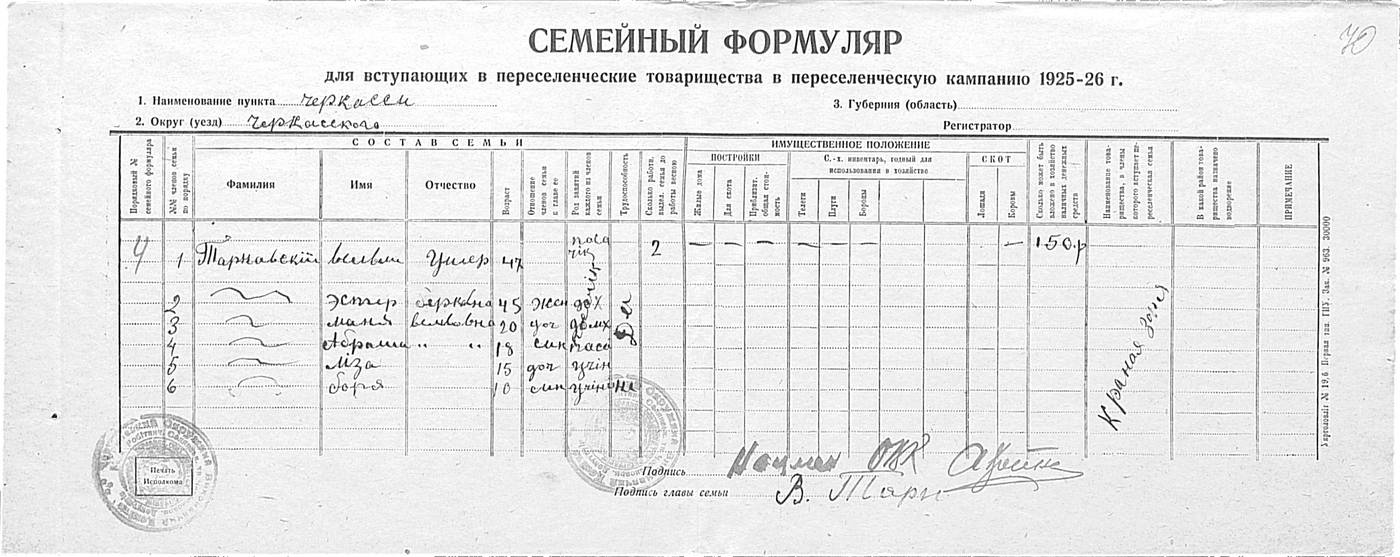 70
СЕМЕЙНЫЙ ФОРМУЛЯР
для вступающих в переселенческие товарищества в переселенческую кампанию 1925-26 г.
1. Наименование пункта Черкассы
3. Губерния (область)
2. Округ (уезд) Черкасского
Регистратор
СОСТАВ СЕМЬИ
ИМУЩЕСТВЕННОЕ ПОЛОЖЕНИЕ
Порядковый № семейного формуляра
№№ членов семьи по порядку
Фамилия
Имя
Отчество
Возраст
Отношение членов семьи к главе ее
Род занятий каждого из членов семьи
Трудоспособность
Сколько работн. выдел. семья до работы весною
ПОСТРОЙКИ
Жилые дома
Для скота
Приблизит. общая стоимость
С.-х. инвентарь, годный для использования в хозяйстве
Телеги
Плуги
Бороны
СКОТ
Лошади
Коровы
Сколько может быть вложено в хозяйство наличных денежных средств
Наименование товарищества, в члены которого вступает переселенческая семья
В какой район товарищества назначено водворение
ПРИМЕЧАНИЕ
4 1 Тарнавский Велвли 47 2 — — — — — — — 150 р
2 Эстер Берковна 45 жен дох
3 Маня Велковна 20 доч домх
4 Абраша " " 18 син
5 Ліза 15 доч учін
6 Боря 10 син учін не
Печать Исполкома
Подпись
Подпись главы семьи В. Тарн
Укрголовліт № 19,6 Перша тип. ГПУ. Зак. № 963. 30000